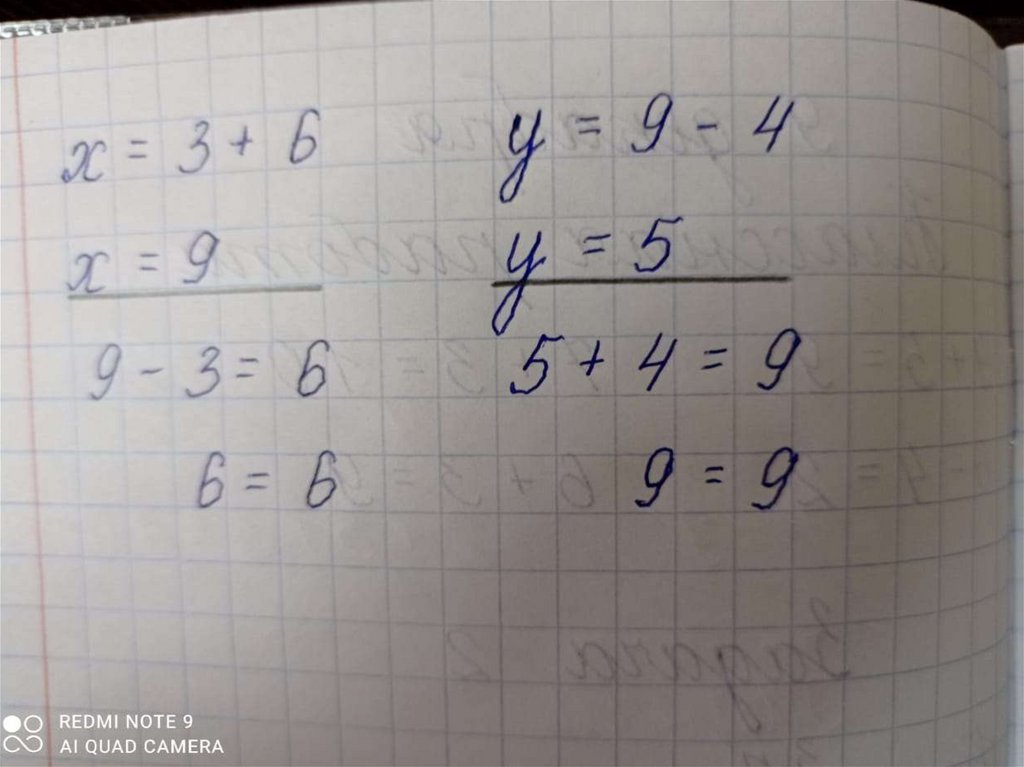 x = 3 + 6
x = 9
9 - 3 = 6
6 = 6
y = 9 - 4
y = 5
5 + 4 = 9
9 = 9
Задача 2
REDMI NOTE 9
AI QUAD CAMERA